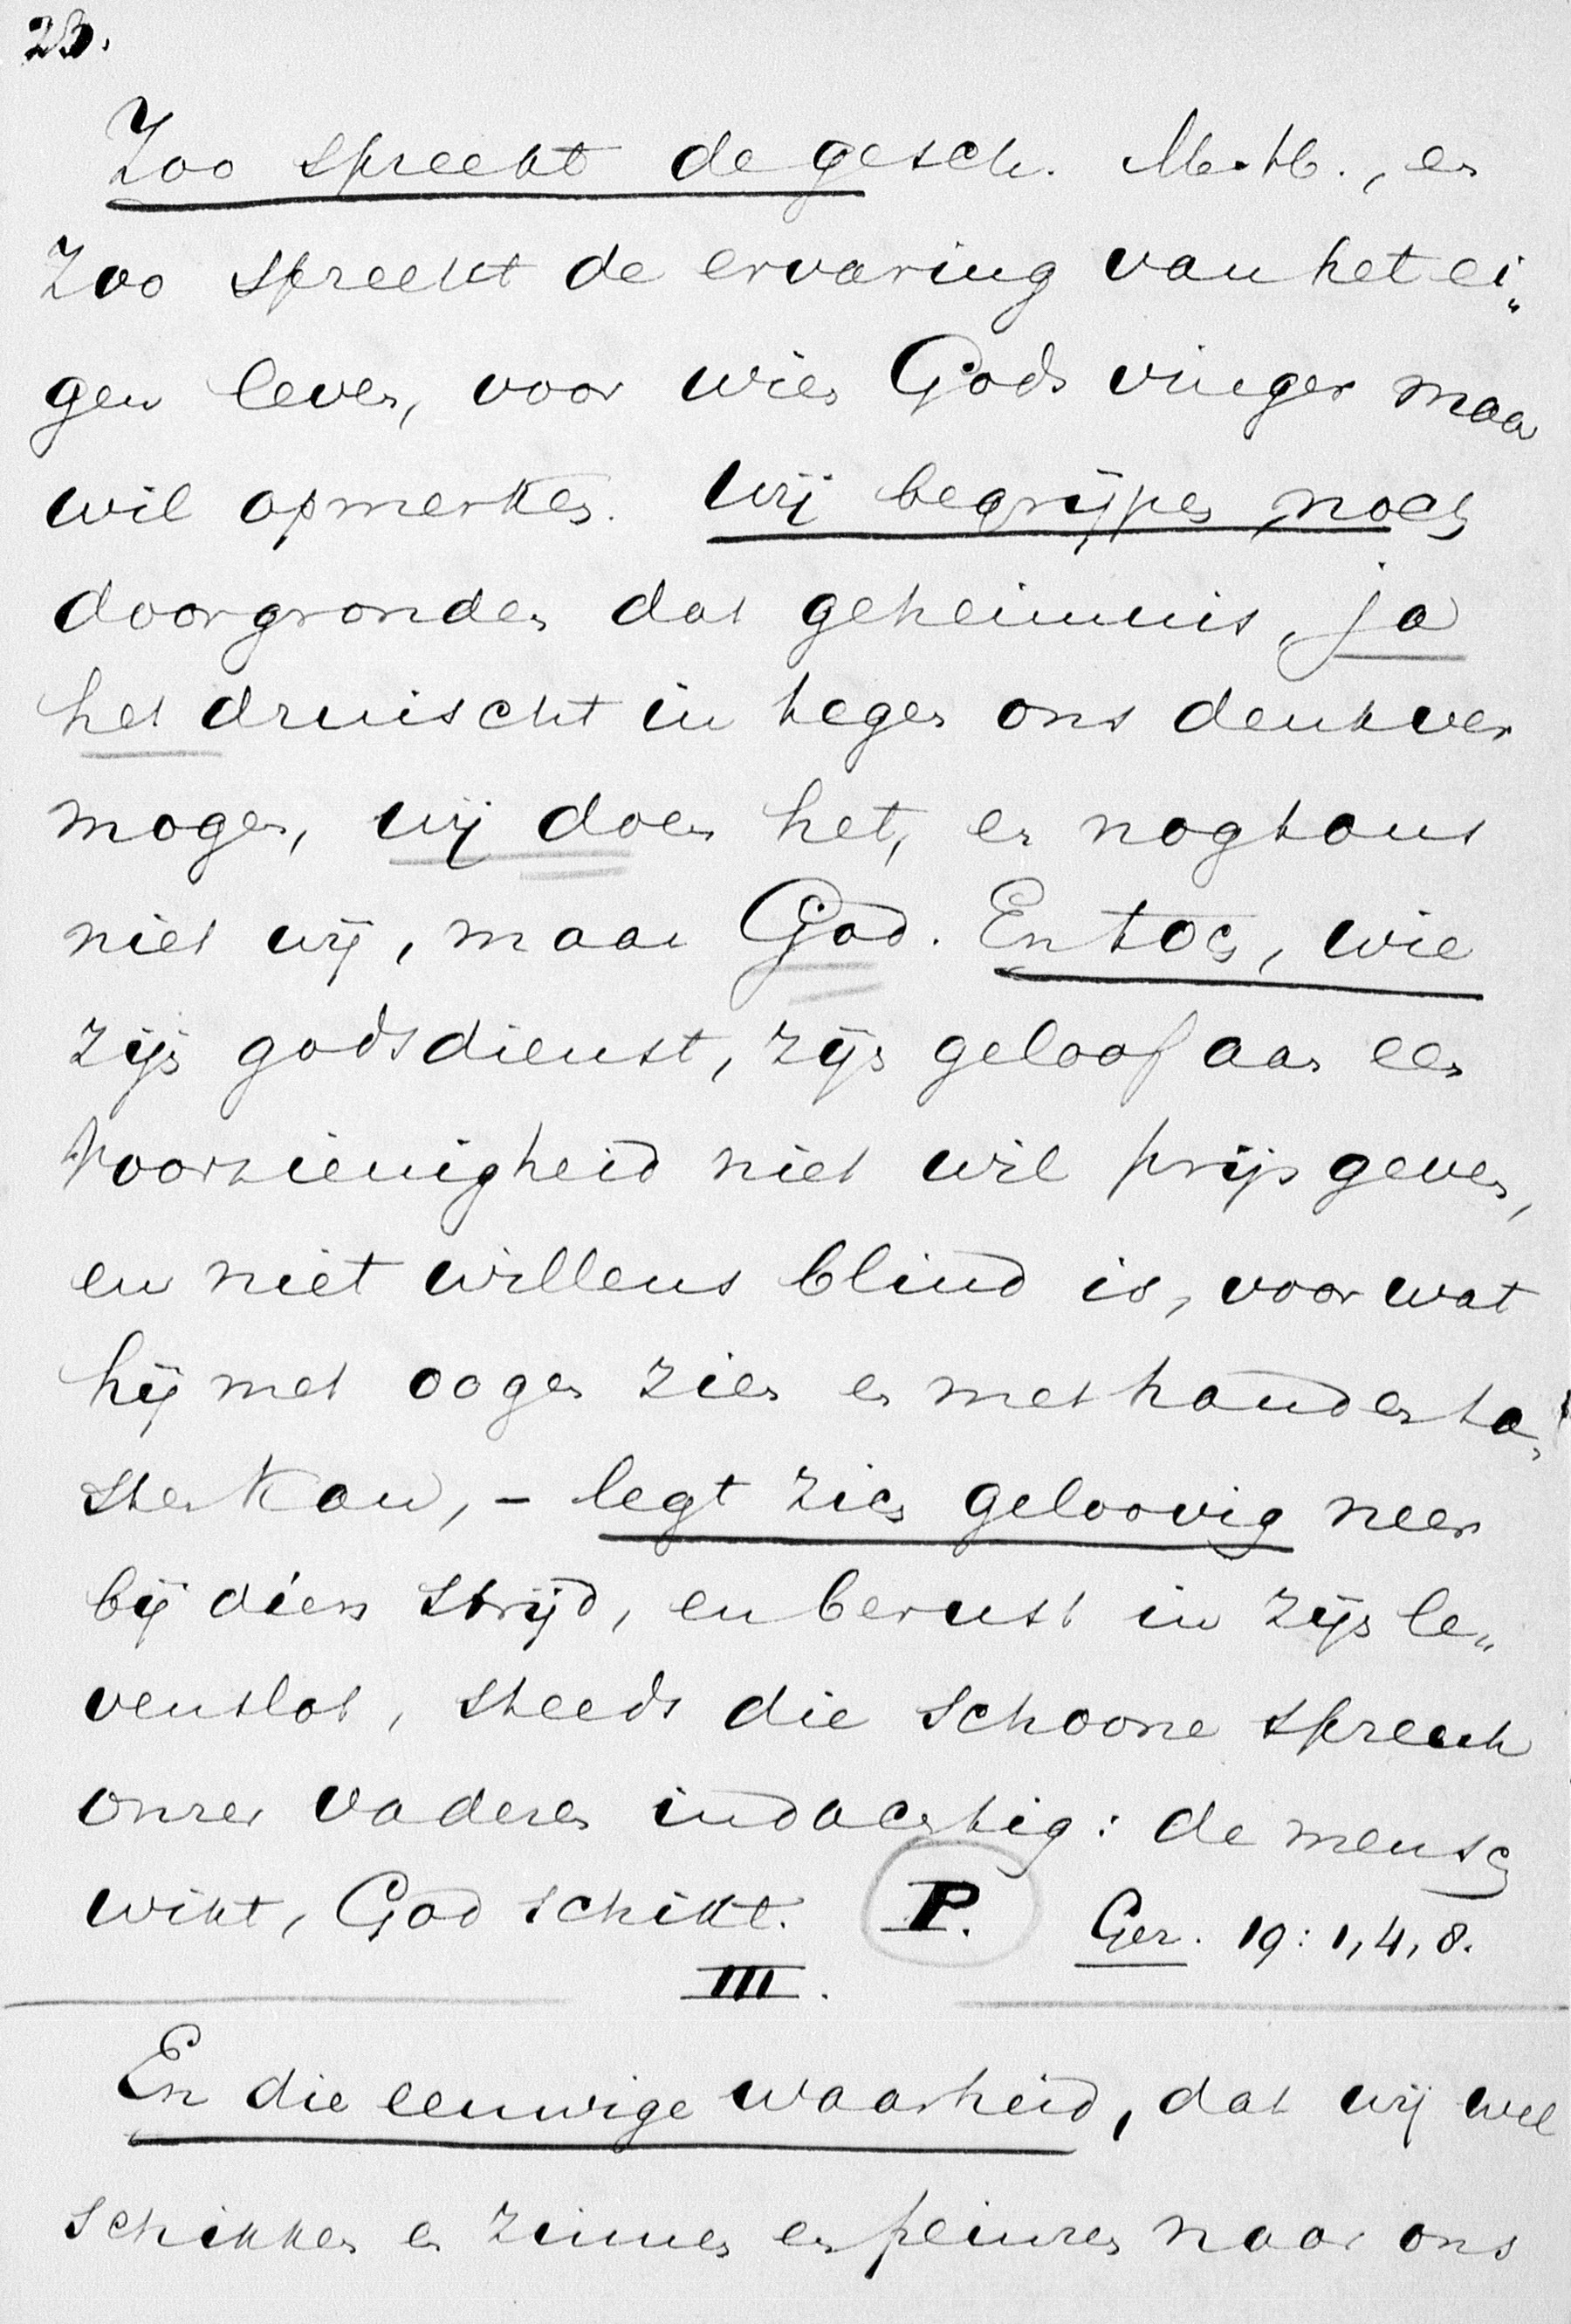 23.
Zoo spreekt de gesch. M. H., en
Zoo spreekt de ervaring van het ei„
gen leven, voor wien Gods vinger maar
wil opmerken. Wij begrijpen noch
doorgronden dat geheimnis, ja
het druischt in tegen ons denkver
mogen, wij doen het, en nogtans
niet wij, maar God. En toch, wie
zijn godsdienst, zijn geloof aan een
Voorzienigheid niet wil prijs geven,
en niet willens blind is, voor wat
hij met oogen zien en met handen ta„
sten kan, – legt zich geloovig neer
bij dien strijd, en berust in zijn le„
venslot, steeds die schoone spreuk
onzer vaderen indachtig: de mensch
wikt, God schikt. P. Gez. 19: 1, 4, 8.
III.
En die eeuwige waarheid, dat wij wel
schikken en zinnen en peinzen naar ons